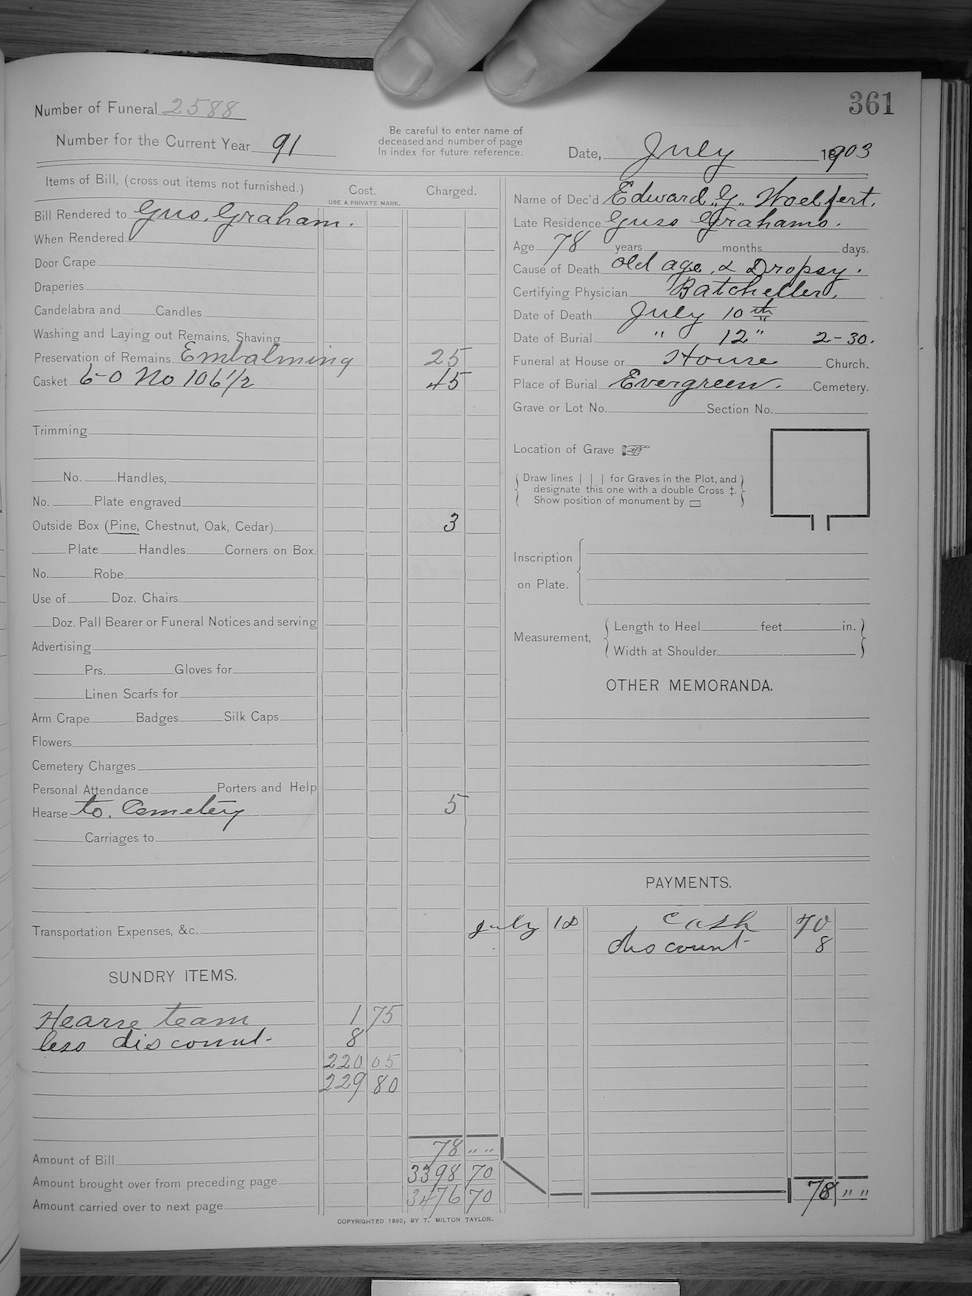 361
Number of Funeral 2588
Number for the Current Year 91
Be careful to enter name of
deceased and number of page
In index for future reference.
Date, July 1903
Items of Bill, (cross out items not furnished.)
Cost.
USE A PRIVATE MARK.
Charged.
Bill Rendered to Gus. Graham.
When Rendered
Door Crape
Draperies
Candelabra and Candles
Washing and Laying out Remains, Shaving
Preservation of Remains Embalming 25
Casket 6-0 No 106 1/2 45
Trimming
No. Handles,
No. Plate engraved
Outside Box (Pine, Chestnut, Oak, Cedar) 3
Plate Handles Corners on Box.
No. Robe
Use of Doz. Chairs
Doz. Pall Bearer or Funeral Notices and serving
Advertising
Prs. Gloves for
Linen Scarfs for
Arm Crape Badges Silk Caps
Flowers
Cemetery Charges
Personal Attendance Porters and Help
Hearse to. Cemetery 5
Carriages to
Transportation Expenses, &c.
SUNDRY ITEMS.
Hearse team 1 75
less discount- 8
220 05
229 80
Amount of Bill 78 " "
Amount brought over from preceding page 3398 70
Amount carried over to next page 3476 70
COPYRIGHTED 1890, BY T. MILTON TAYLOR.
Name of Dec'd Edward. G. Woelfert.
Late Residence Guss Grahams.
Age 78 years months days.
Cause of Death old age, & Dropsy.
Certifying Physician Batcheller.
Date of Death July 10th
Date of Burial " 12" 2-30.
Funeral at House or House Church.
Place of Burial Evergreen. Cemetery.
Grave or Lot No. Section No.
Location of Grave ☞
Draw lines | | | for Graves in the Plot, and
designate this one with a double Cross ‡.
Show position of monument by ▭
Inscription
on Plate.
Measurement,
Length to Heel feet in.
Width at Shoulder
OTHER MEMORANDA.
PAYMENTS.
July 18 Cash 70
discount- 8
78 " "